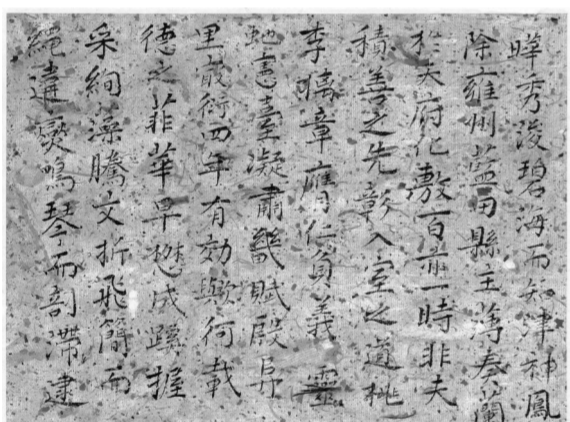 曄秀浚碧海而知津神鳳
除雍州藍田縣主薄奏蘭
於天府化敷百一時非夫
積善之先彰入室之道桃
李擒章膺仁負義靈
虵憲臺凝肅畿賦殷阜
里最衍四年有効歟何載
德之菲華早成蹊握
采絢藻騰文折飛簡而
繩違爰鳴琴而剖滯逮